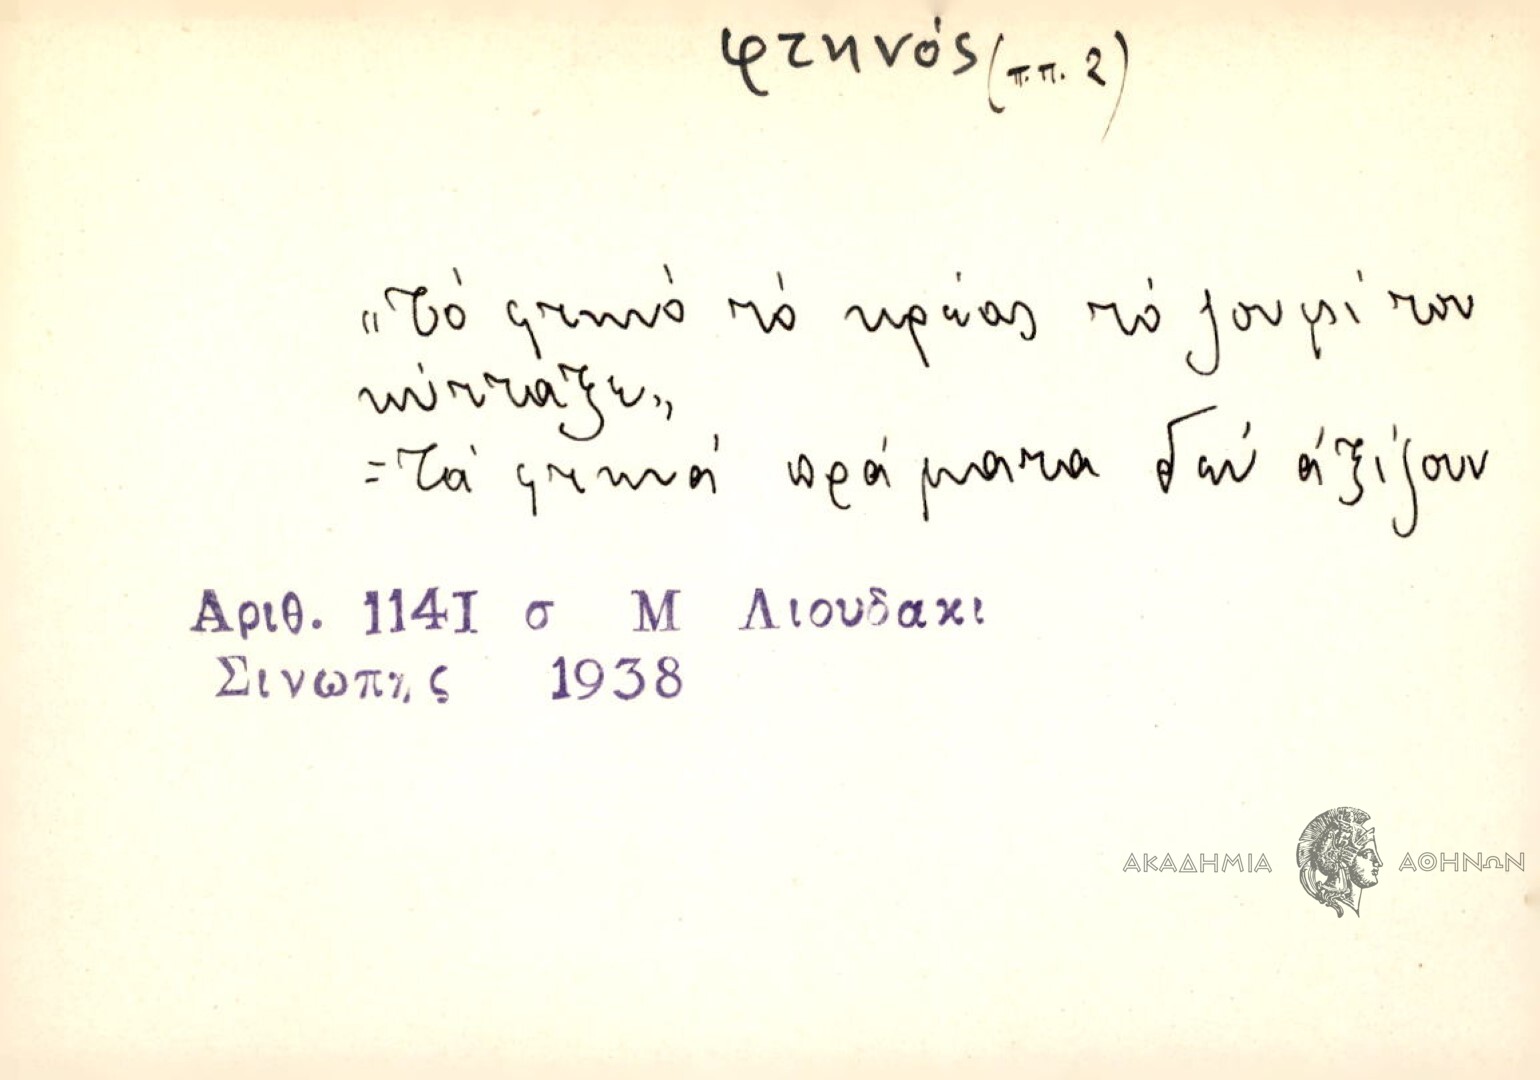 φτηνός (π.π. 2)
„Τὸ φτηνὸ τὸ κρέας τὸ ζουμὶ του
κύτταξε„
=Τὰ φτηνὰ πράματα δὲν ἀξίζουν
Αριθ. 114I σ Μ Λιουδακι
Σινωπης 1938
ΑΚΑΔΗΜΙΑ ΑΘΗΝΩΝ